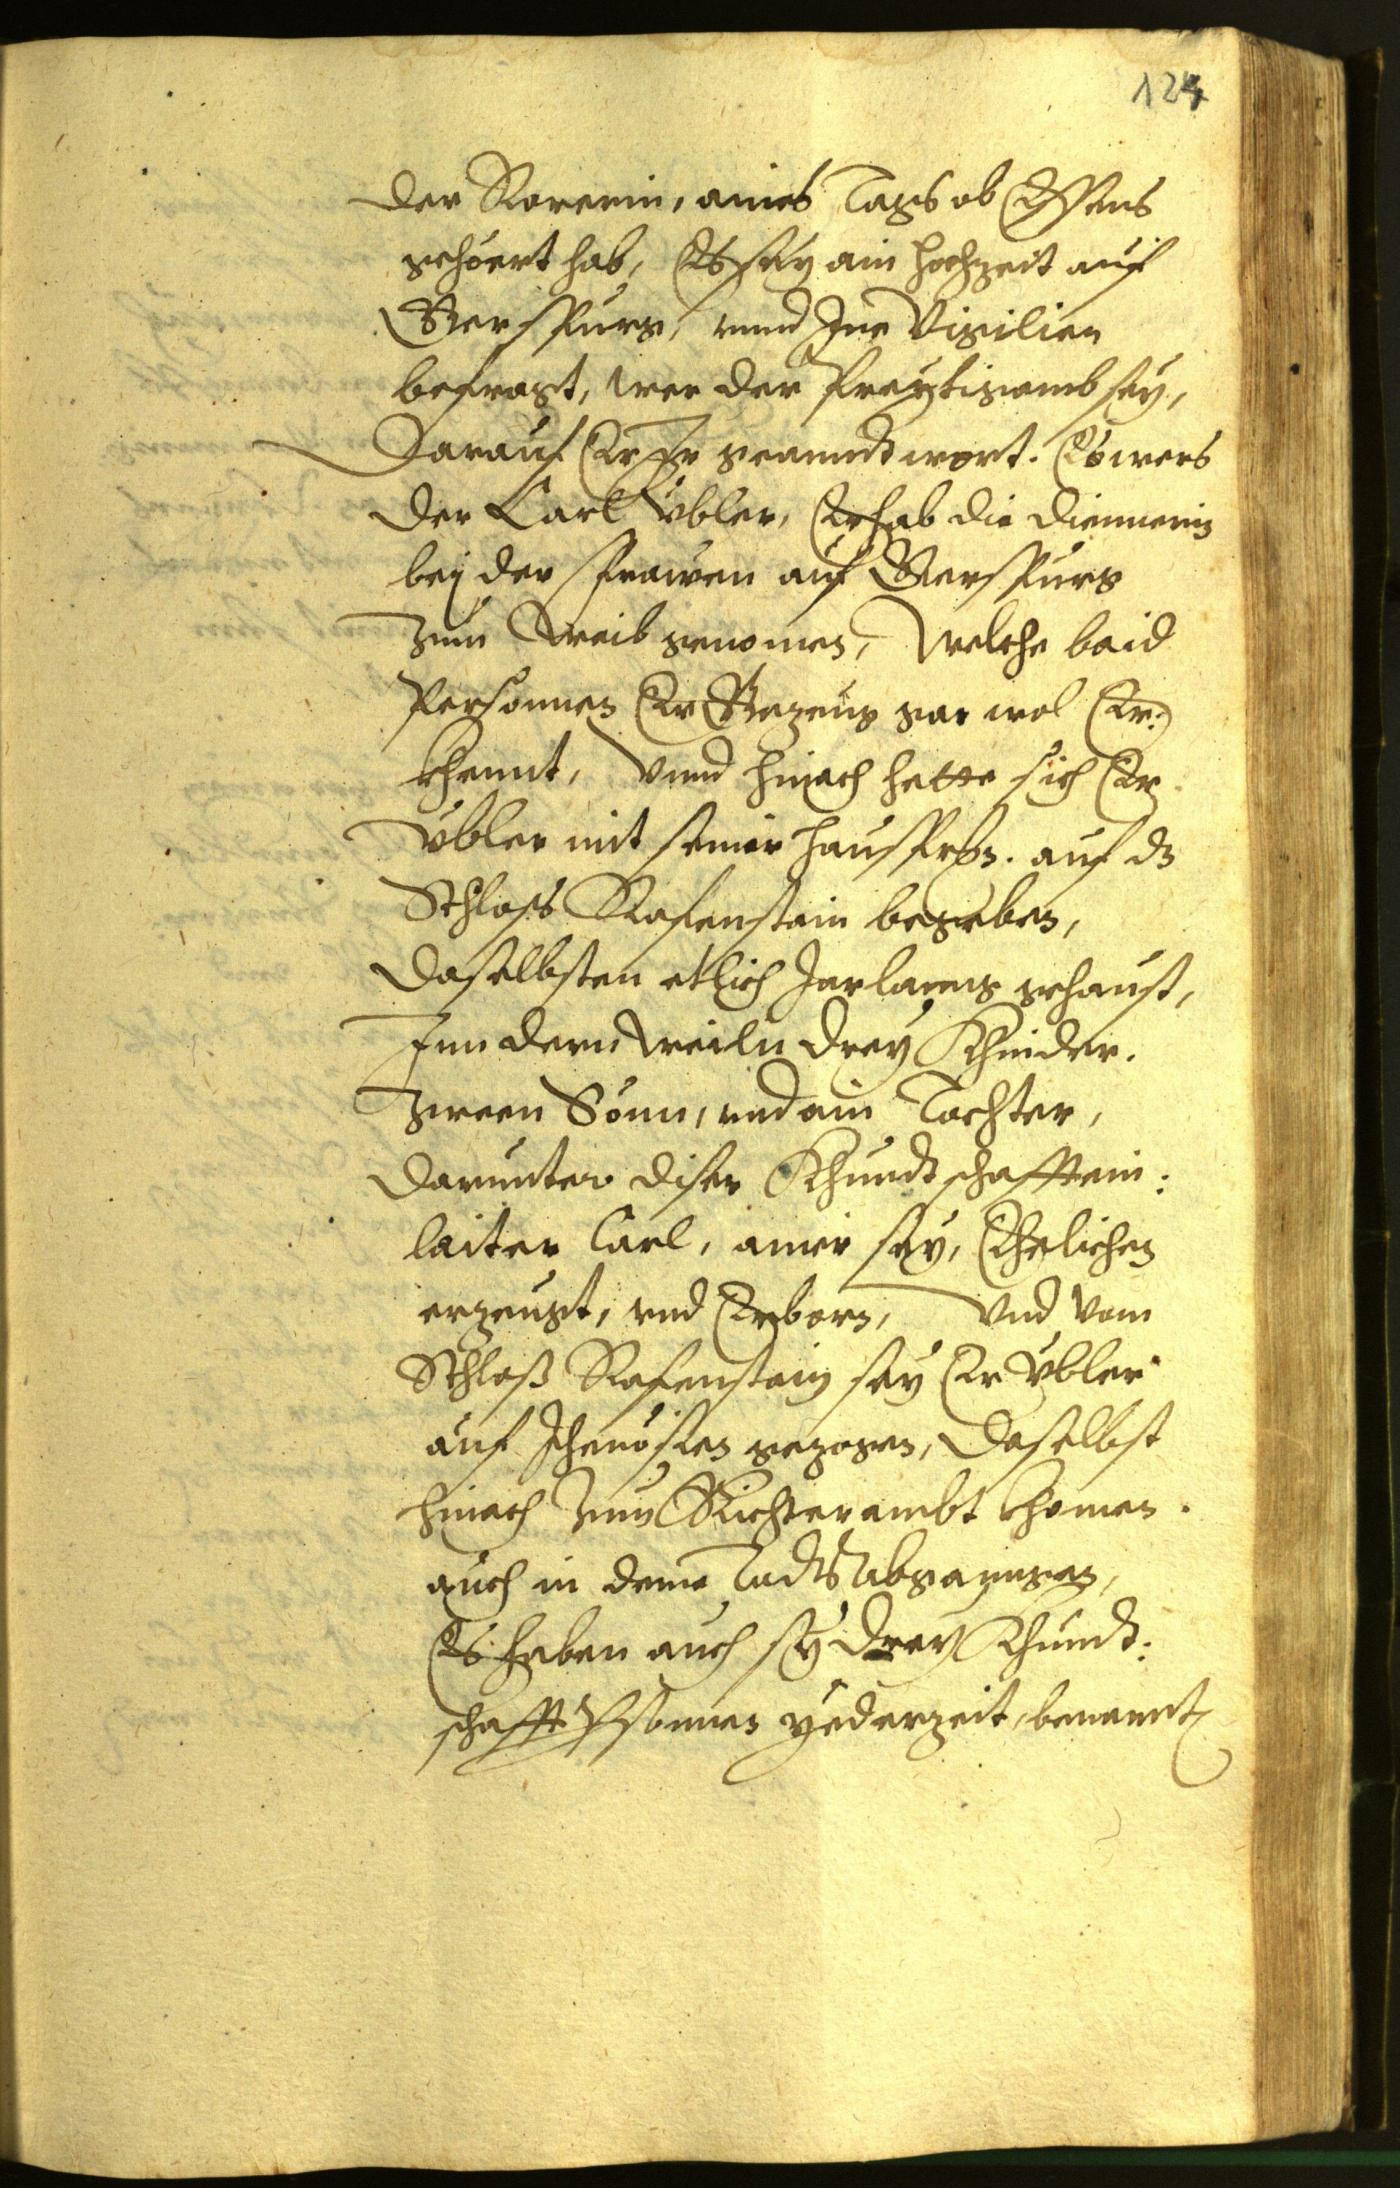 124
der Rorerin, aines Tags ob Essens
gehöert hab, Es sey ain Hochzeit auf
Gerspurg, vnnd Ine Vigilien
befragt, wer der Preytigamb sey,
Darauf Er Ir geanndtwort. Es wers
der Carl Vbler, Er hab die Diennerin
bej der Frawen auf Gerspurg
zum Weib genomen, Welche baid
Personnen Er Gezeug gar wol Er:
khennt, Vnnd hinach hette sich Er
Vbler mit seiner Haußfrn. auf dz
Schloss Rafenstain begeben,
Daselbsten etlich Jarlanng gehaust,
Inn dern weiln drey Khinder.
Zween Sönn, vnd ain Tochter,
Darunter diser Khundtschafft ein:
laiter Carl, ainer sey, Ehelichen
erzeugt, vnd Erborn, Vnd vom
Schloß Rafenstain sey Er Vbler
auf Jhenösien gezogen, Daselbst
hinach zum Richterambt khomen.
auch in deme Tods Abganngen,
Es haben auch sy drey Khundt:
schafft Psonnen yederzeit, benannt